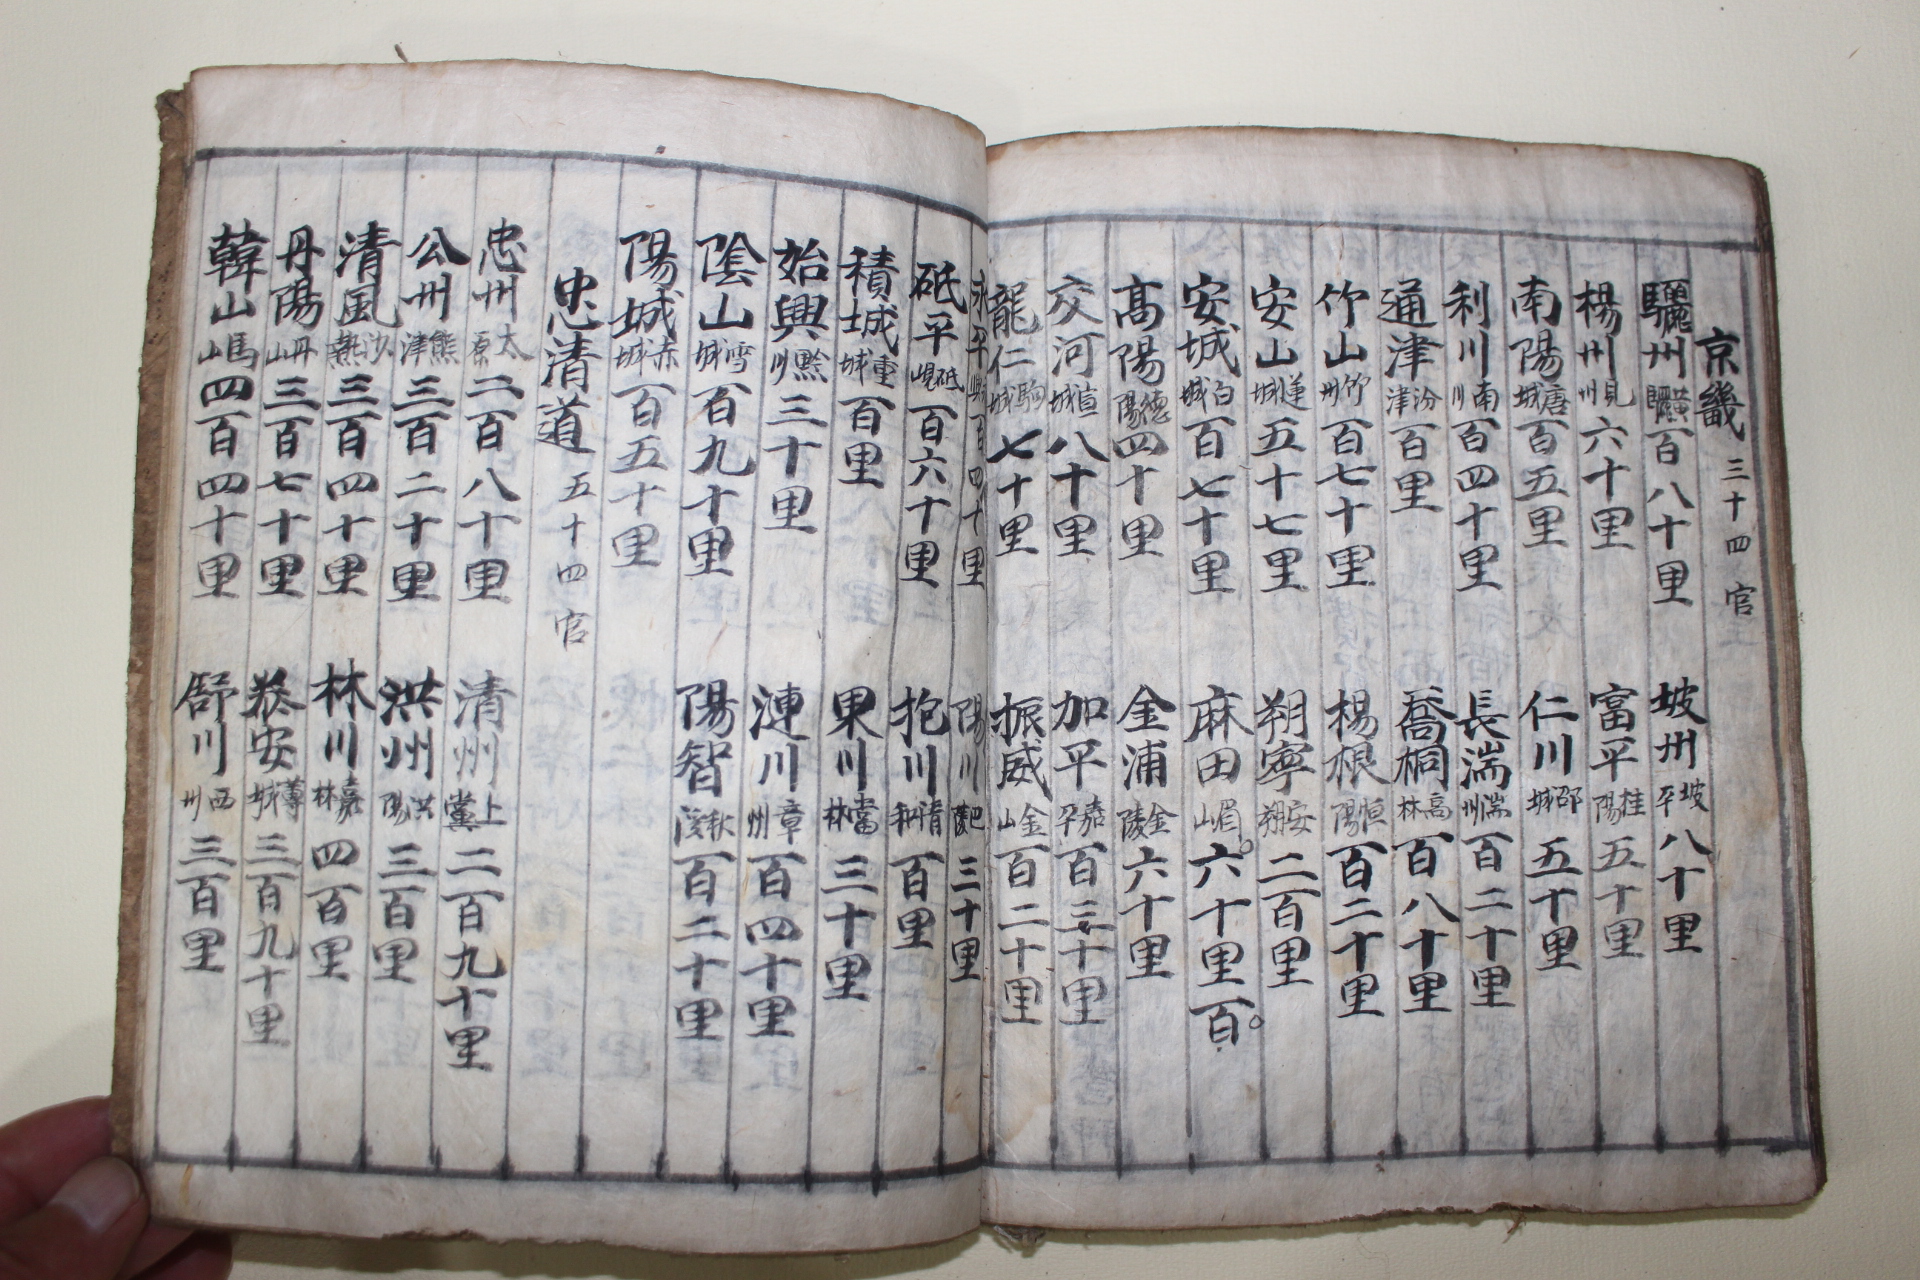 京畿 三十四官
驪州 黃驪 百八十里 坡州 坡平 八十里
楊州 見州 六十里 富平 桂陽 五十里
南陽 唐城 百五里 仁川 邵城 五十里
利川 南川 百四十里 長湍 湍州 百二十里
通津 汾津 百里 喬桐 高林 百八十里
竹山 竹州 百七十里 楊根 恒陽 百二十里
安山 蓮城 五十七里 朔寧 安朔 二百里
安城 白城 百七十里 麻田 嵋山 六十里 百
高陽 德陽 四十里 金浦 金陵 六十里
交河 宣城 八十里 加平 嘉平 百三十里
龍仁 駒城 七十里 振威 金山 百二十里
永平 百四十里 陽川 三十里
砥平 砥峴 百六十里 抱川 清和 百里
積城 重城 百里 果川 當林 三十里
始興 黔川 三十里 漣川 章州 百四十里
陰山 雪城 百九十里 陽智 秋溪 百二十里
陽城 赤城 百五十里
忠清道 五十四官
忠州 太原 二百八十里 清州 上黨 二百九十里
公州 熊津 三百二十里 洪州 洪陽 三百里
清風 沙熱 三百四十里 林川 嘉林 四百里
丹陽 丹山 三百七十里 泰安 蓴城 三百九十里
韓山 馬山 四百四十里 舒川 西州 三百里